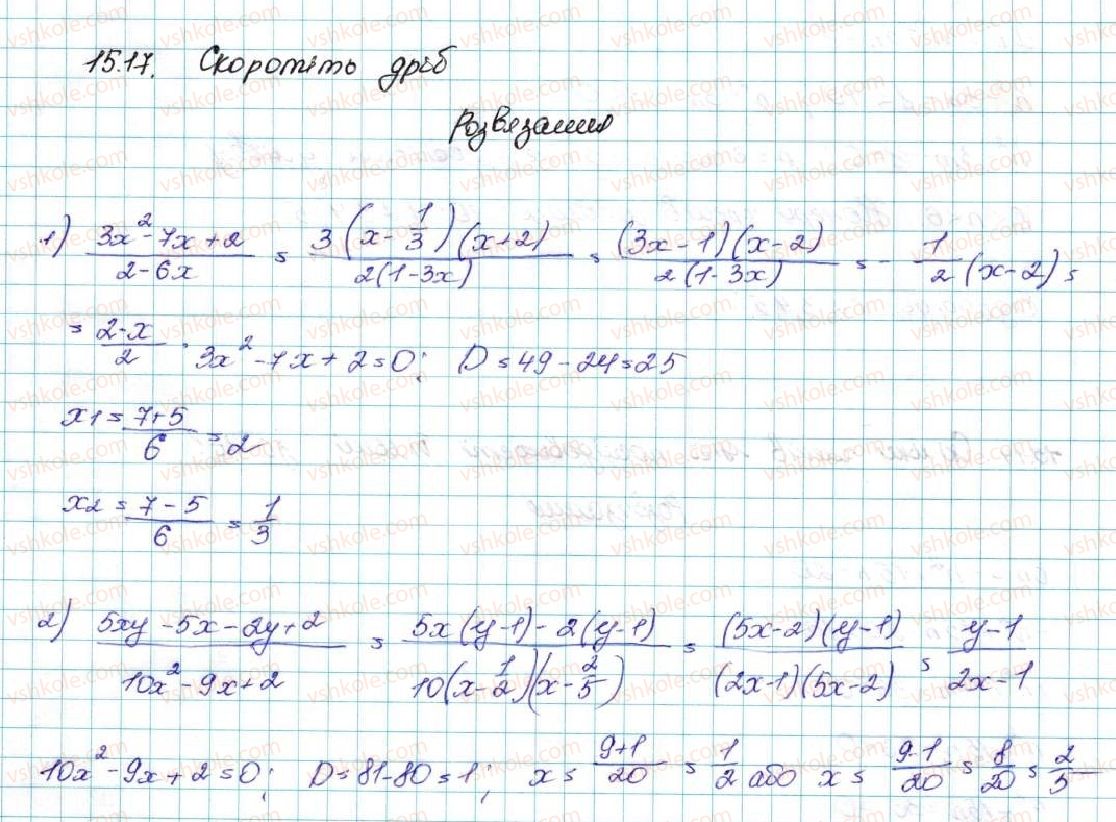 15.17. Скоротіть дріб
Розвязання
1) (3x² - 7x + 2)/(2 - 6x) = 3(x - 1/3)(x + 2)/(2(1 - 3x)) = (3x - 1)(x - 2)/(2(1 - 3x)) = - 1/2 (x - 2) =
= (2 - x)/2 . 3x² - 7x + 2 = 0; D = 49 - 24 = 25
x1 = (7 + 5)/6 = 2
x2 = (7 - 5)/6 = 1/3
2) (5xy - 5x - 2y + 2)/(10x² - 9x + 2) = (5x(y - 1) - 2(y - 1))/(10(x - 1/2)(x - 2/5)) = (5x - 2)(y - 1)/((2x - 1)(5x - 2)) = (y - 1)/(2x - 1)
10x² - 9x + 2 = 0; D = 81 - 80 = 1; x = (9 + 1)/20 = 1/2 або x = (9 - 1)/20 = 8/20 = 2/5